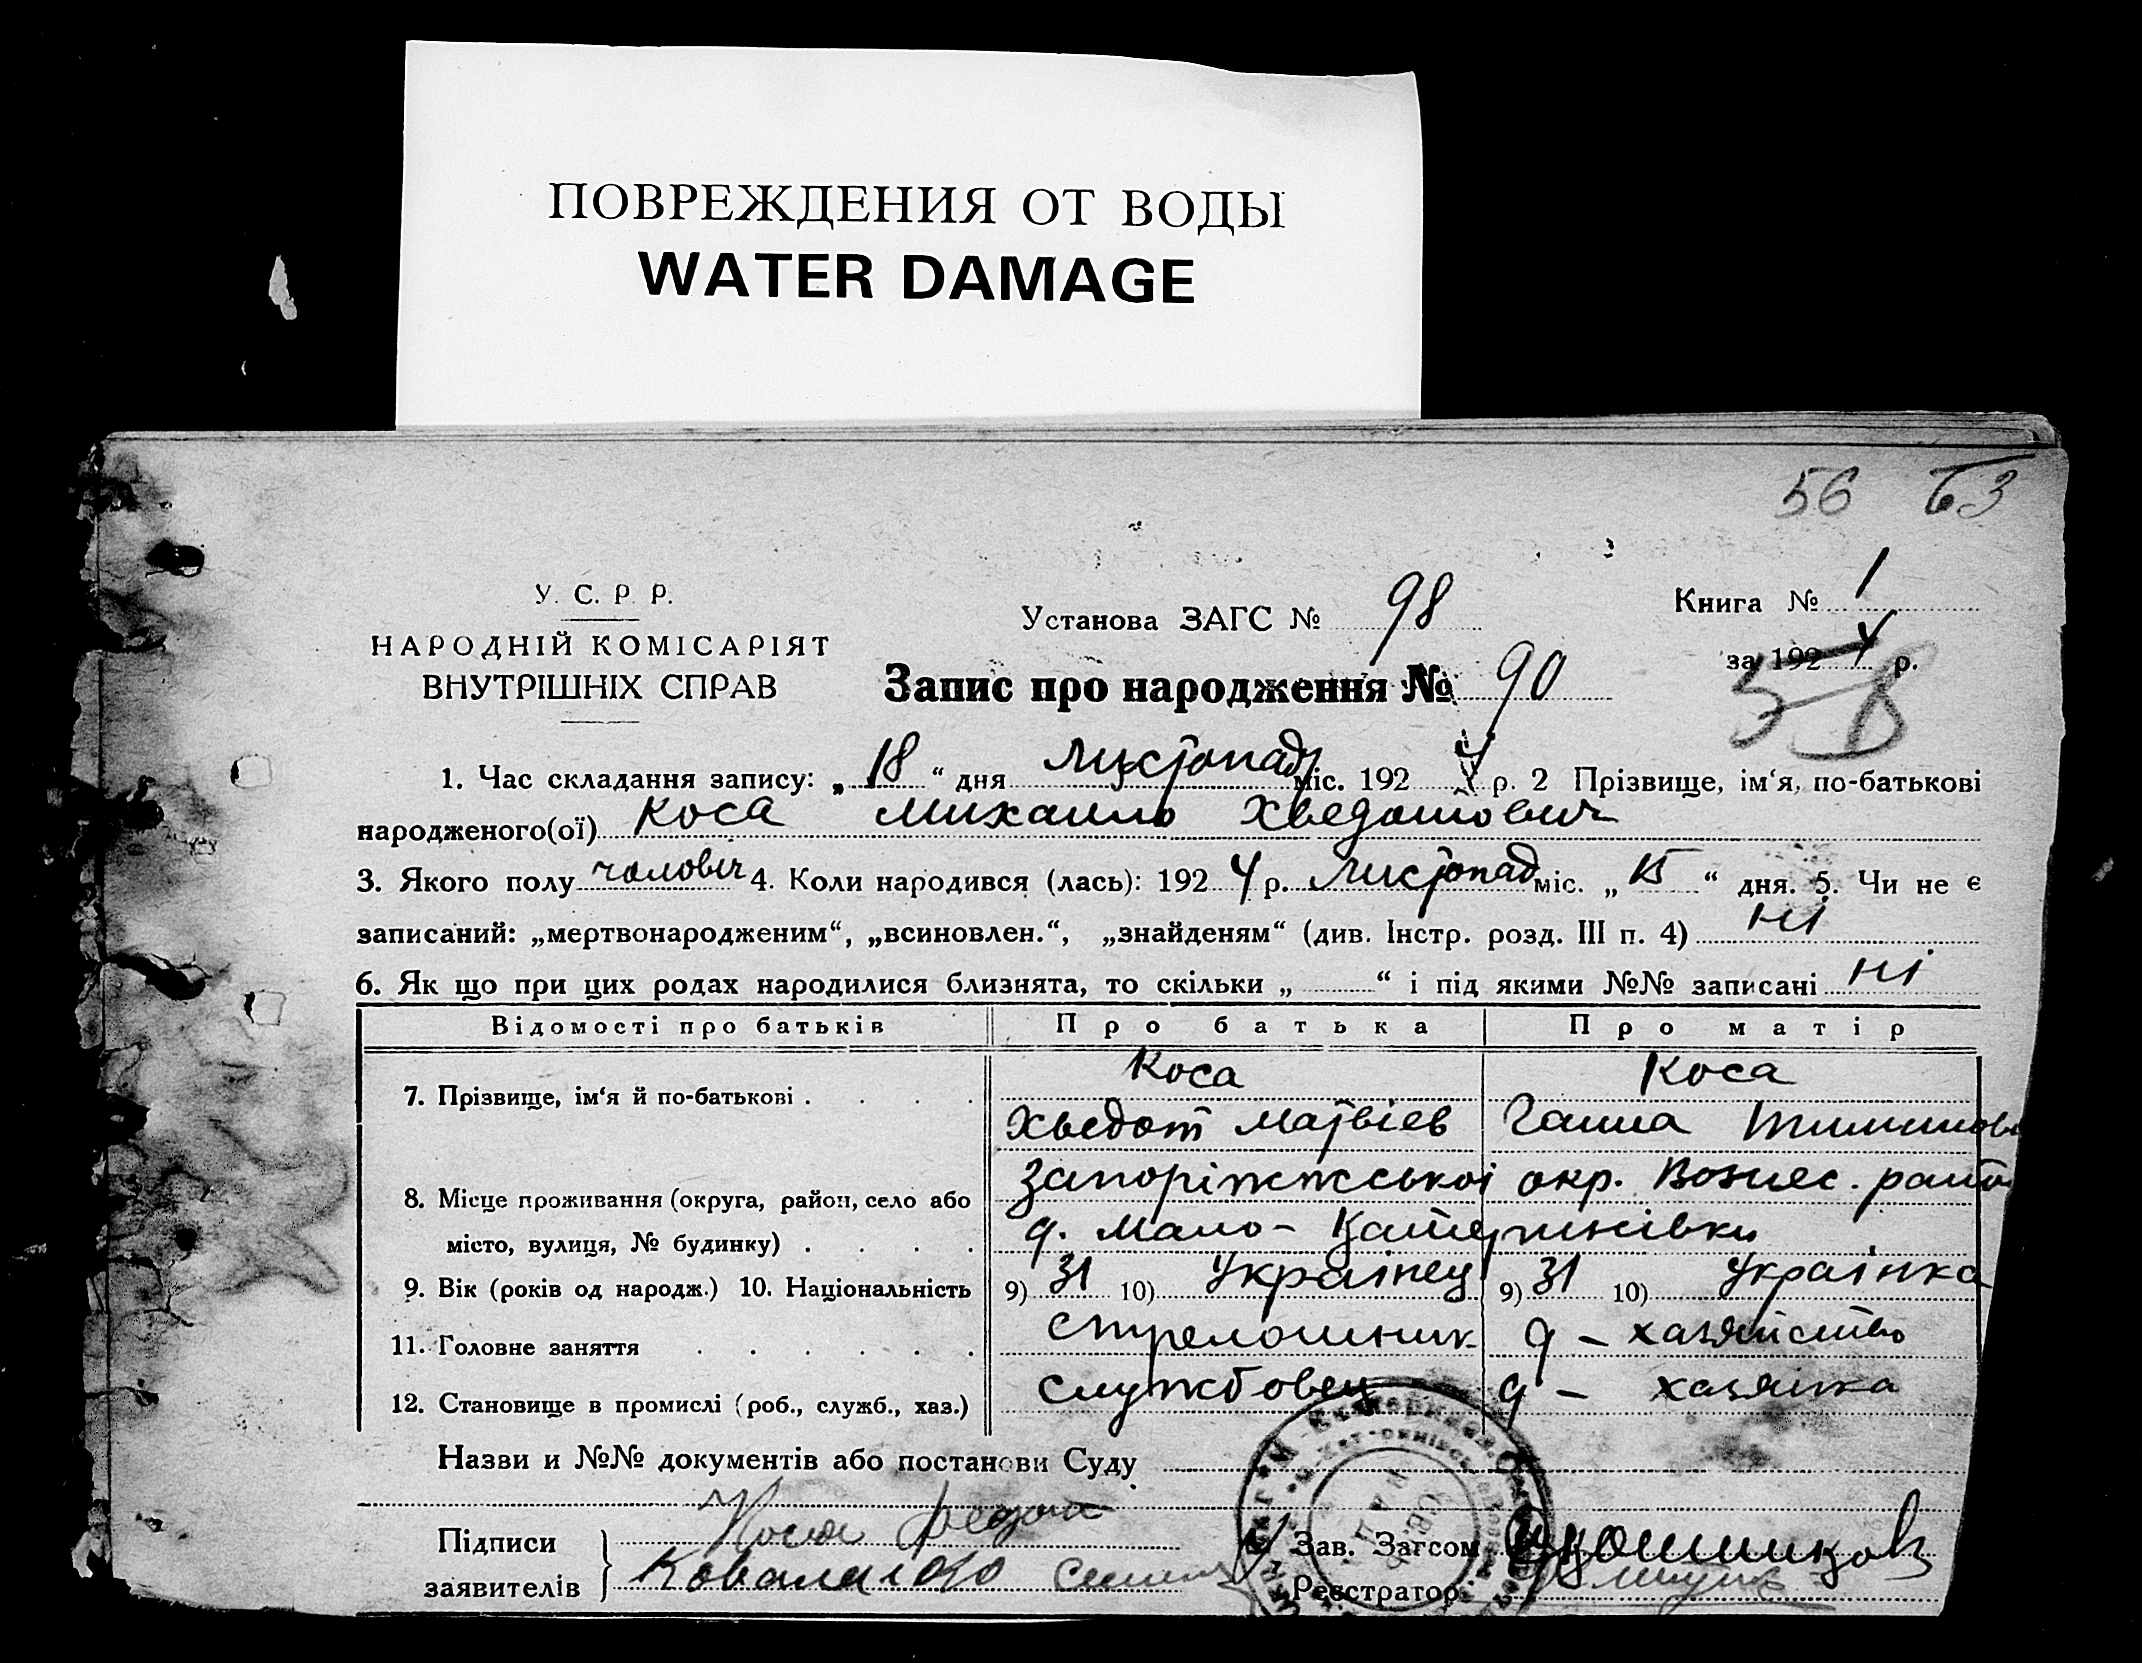 ПОВРЕЖДЕНИЯ ОТ ВОДЫ
WATER DAMAGE
56 63
У. С. Р. Р.
НАРОДНІЙ КОМІСАРІЯТ
ВНУТРІШНІХ СПРАВ
Установа ЗАГС № 98
Книга № 1
за 1924 р.
Запис про народження № 90
1. Час складання запису: „ 18 “ дня Листопад міс. 192 4 р. 2 Прізвище, ім‘я, по-батькові
народженого(ої) Коса Михаило Хведотович
3. Якого полу чоловіч 4. Коли народився (лась): 192 4 р. Листопад міс. „ 15 “ дня. 5. Чи не є
записаний: „мертвонародженим“, „всиновлен.“, „знайденям“ (див. Інстр. розд. III п. 4) ні
6. Як що при цих родах народилися близнята, то скільки „ “ і під якими №№ записані ні
Відомості про батьків Про батька Про матір
Коса Коса
7. Прізвище, ім‘я й по-батькові
Хведот Матвіев Ганна
Запоріжжської окр. Вознес.
8. Місце проживання (округа, район, село або
місто, вулиця, № будинку) д. Мало-Катеринівки
9. Вік (років од народж.) 10. Національність 9) 31 10) Українец 9) 31 10) Українка
11. Головне заняття стрелошник д – хазяйство
12. Становище в промислі (роб., служб., хаз.) службовец д – хазяйка
Назви и №№ документів або постанови Суду
Підписи
заявителів
Зав. Загсом
Реєстратор